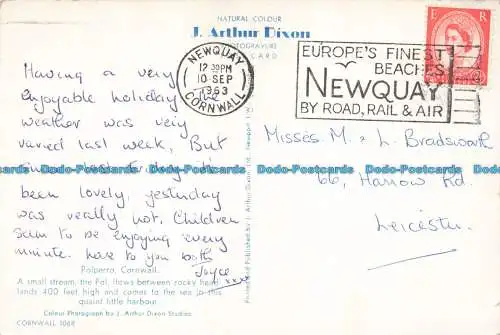 NATURAL COLOUR
J. Arthur Dixon
PHOTOGRAVURE
CARD
NEWQUAY
12 30PM
10 SEP
1963
CORNWALL
EUROPE'S FINEST
BEACHES
NEWQUAY
BY ROAD, RAIL & AIR
E R
Having a very
enjoyable holiday. The
weather was very
varied last week, But
since
been lovely, yesterday
was really hot. Children
seem to be enjoying every
minute. Love to you both
Joyce
xxxx
Misses M & L. Bradsworth
66, Harrow Rd.
Leicester
Polperro, Cornwall.
A small stream, the Pol, flows between rocky head-
lands 400 feet high and comes to the sea in this
quaint little harbour.
Colour Photograph by J. Arthur Dixon Studios
CORNWALL 1068
Printed and Published by J. Arthur Dixon Ltd. Newport I.W.
Dodo-Postcards Dodo-Postcards Dodo-Postcards Dodo-Postcards